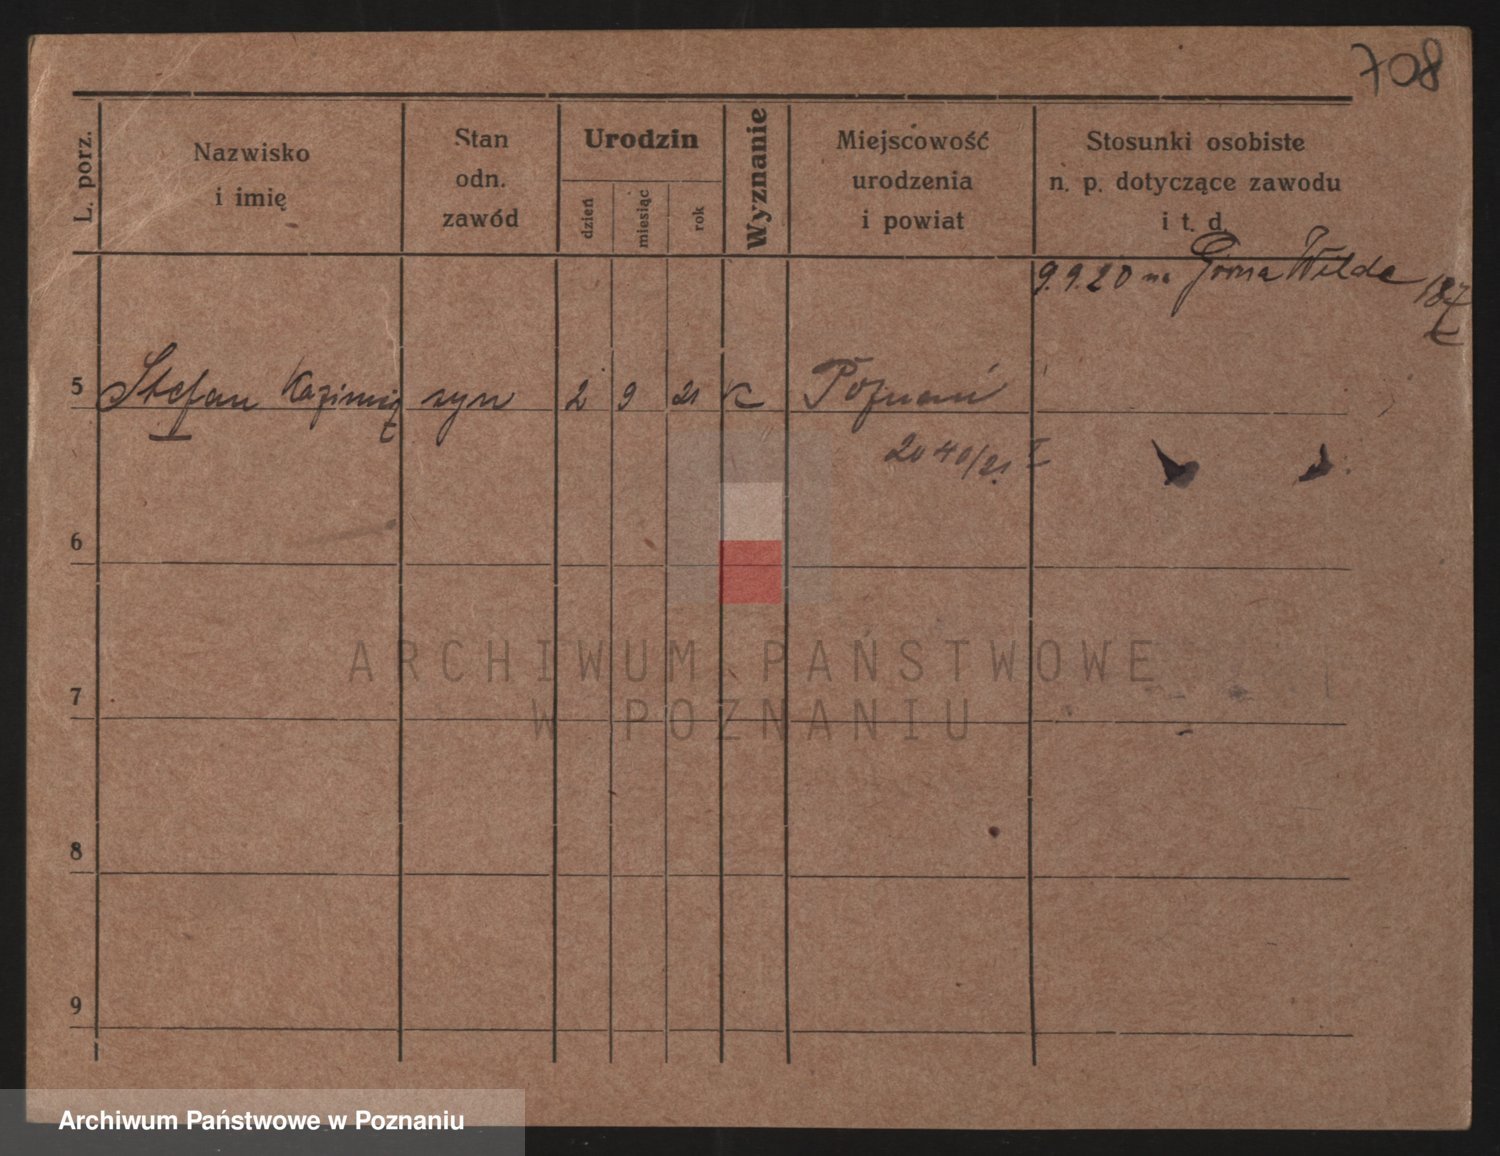 708
L. porz.
Nazwisko
i imię
Stan
odn.
zawód
Urodzin
dzień
miesiąc
rok
Wyznanie
Miejscowość
urodzenia
i powiat
Stosunki osobiste
n. p. dotyczące zawodu
i t. d.
9.9.20 na Górna Wilda 187
5 Stefan Kazimierz syn 2 9 21 K Poznań
2040/21 I
6
ARCHIWUM PAŃSTWOWE
7
W POZNANIU
8
9
Archiwum Państwowe w Poznaniu